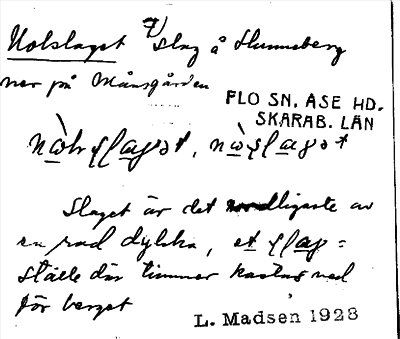 Nolslaget Slag å Hunneberg
ner på Månsgården
FLO SN. ÅSE HD.
SKARAB. LÄN
Slaget är det nordligaste av
en rad dylika, et slag =
ställe där timmer kastas ned
för berget
L. Madsen 1928